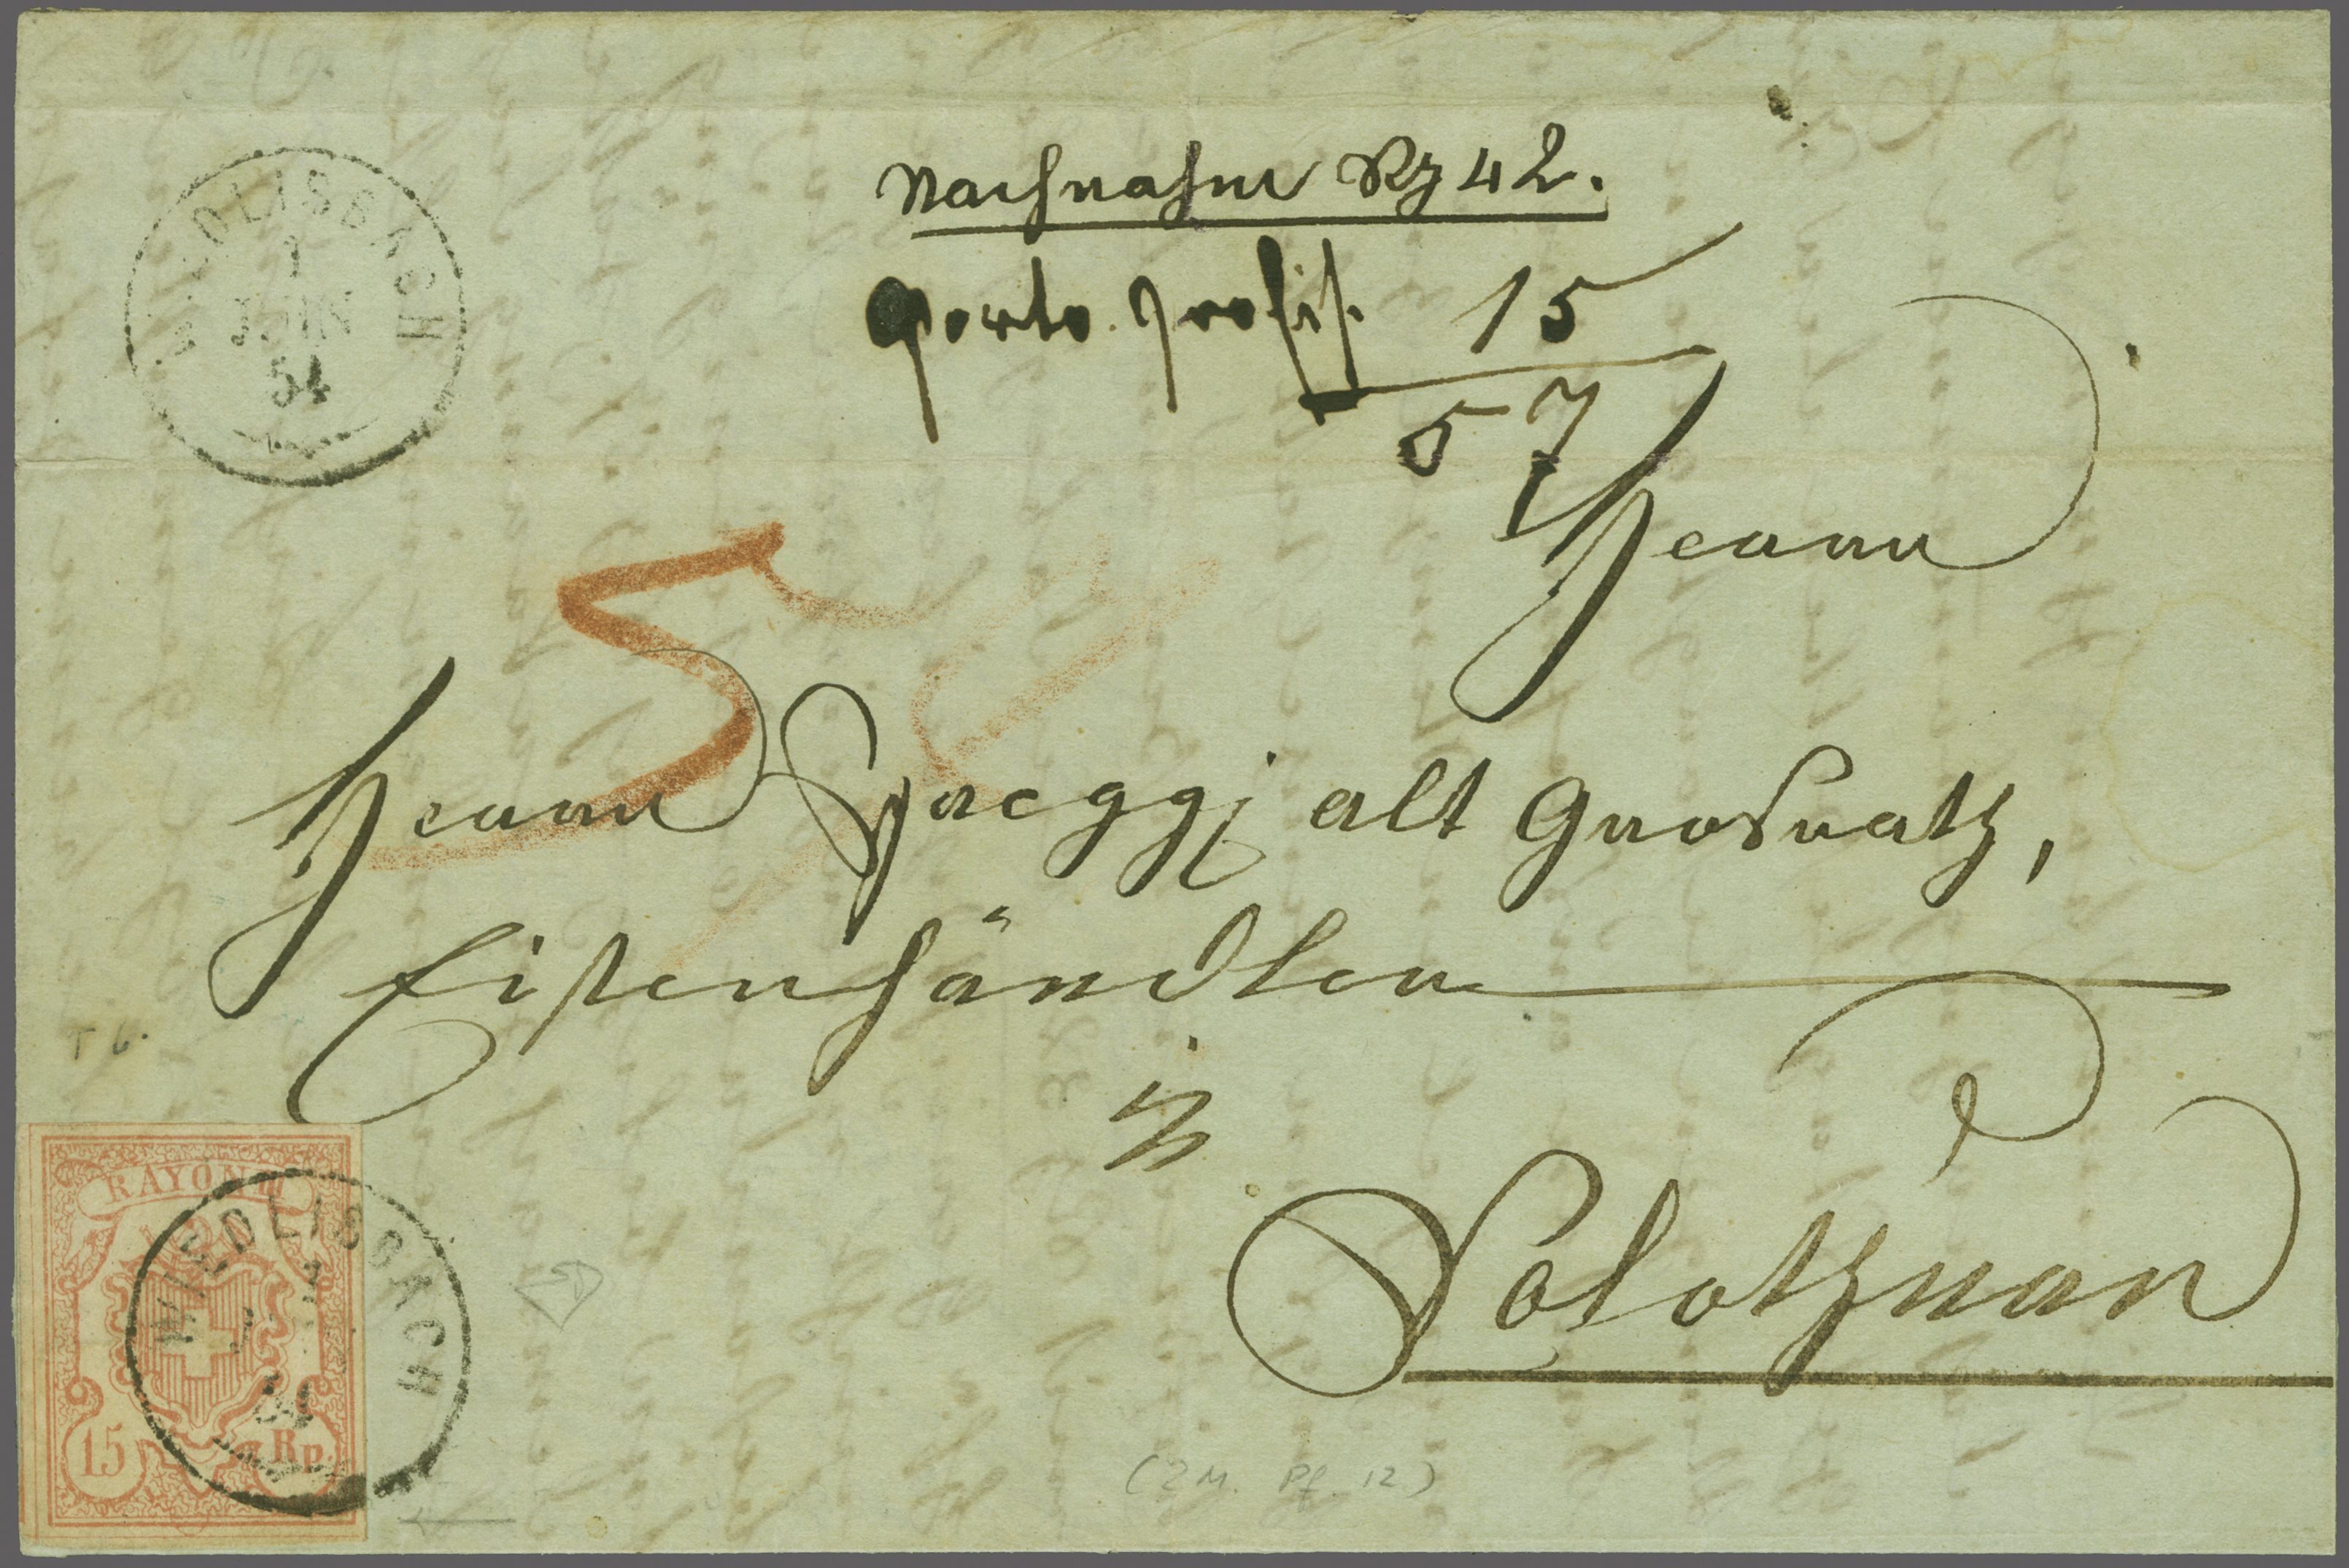 WIEDLISBACH
1
JUIN
54
Nachnahme Rp 42.
Porto & Provis. 15
57
Herrn
Herrn Jaeggj alt Großrath,
Eisenhändler
in
Solothurn
RAYON III
WIEDLISBACH
54
15 Rp.
(ZM. Pf. 12)